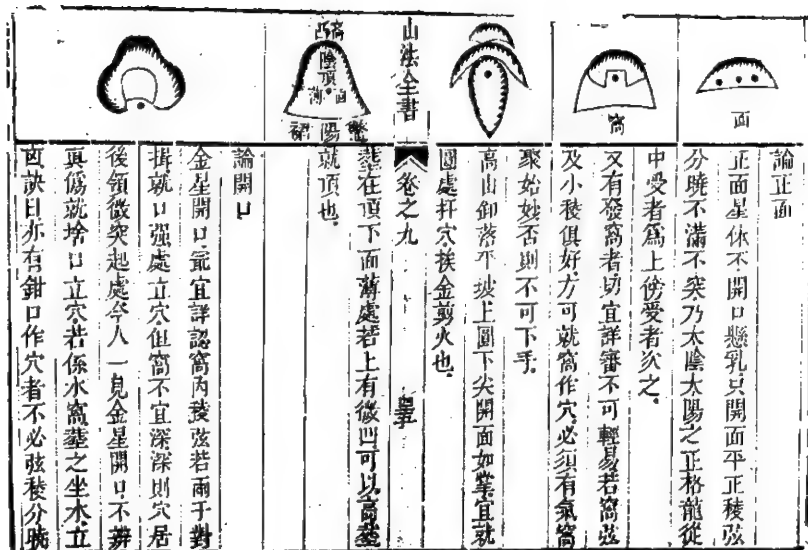 面
論正面
正面星体不開口懸乳只開面平正稜弦
分曉不滿不突乃太陰太陽之正格龍從
中受者爲上傍受者次之
窩
又有發窩者切宜詳審不可輕易若窩弦
及小稜俱好方可就窩作穴必須有氣窩
聚始妙否則不可下手
高山卸落平坡上圓下尖開面如掌宜就
圓處扦穴挨金剪火也
山法全書
卷之九
高凸
陰頂
面薄
陽
葬在頂下面薄處若上有微凹可以高葬
就頂也
論開口
金星開口最宜詳認窩內稜弦若兩手對
揖就口强處立穴但窩不宜深深則穴居
後領微突起處今人一見金星開口不辨
真僞就捨口立穴若係水窩葬之坐水立
凶訣曰亦有鉗口作穴者不必弦稜分曉